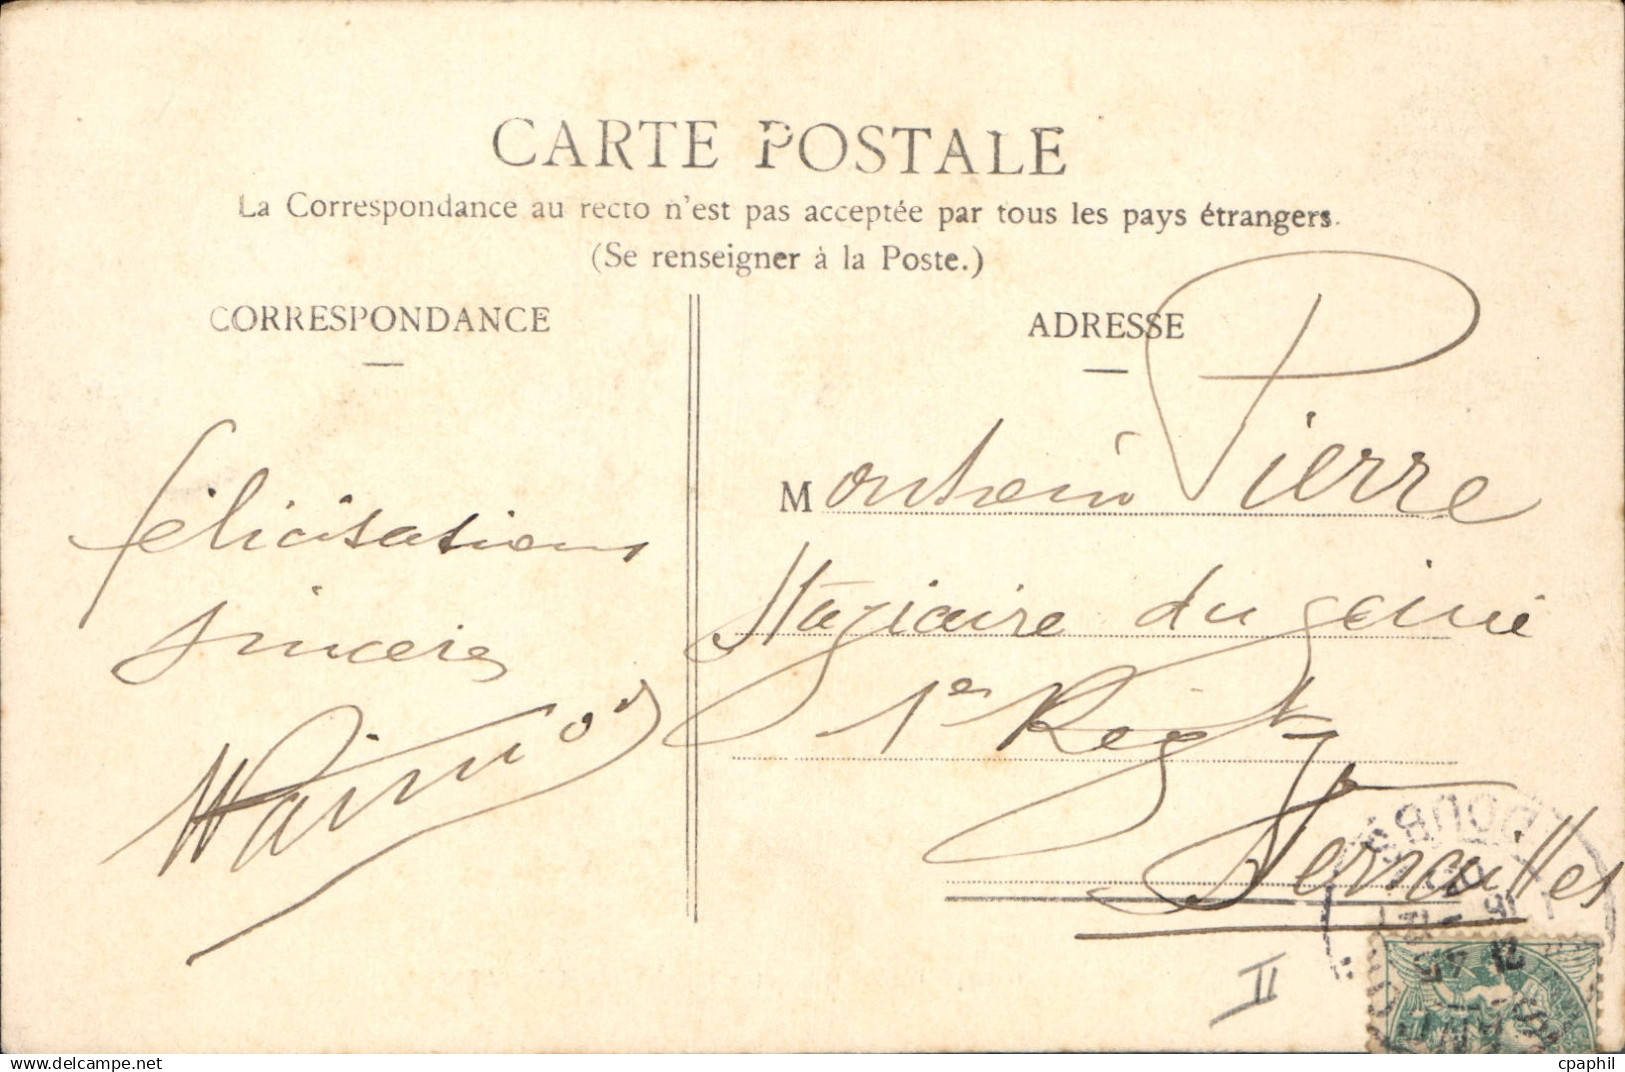 CARTE POSTALE
La Correspondance au recto n'est pas acceptée par tous les pays étrangers.
(Se renseigner à la Poste.)
CORRESPONDANCE
félicitations
sincères
ADRESSE
M Pierre
Stagiaire du génie
1er Régt
Versailles
II
cpaphil.com